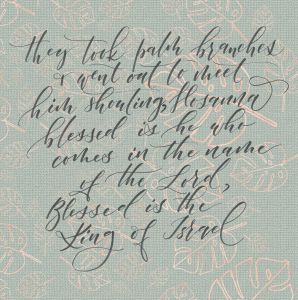 they took palm branches
& went out to meet
him shouting, Hosanna
blessed is he who
comes in the name
of the Lord,
Blessed is the
King of Israel